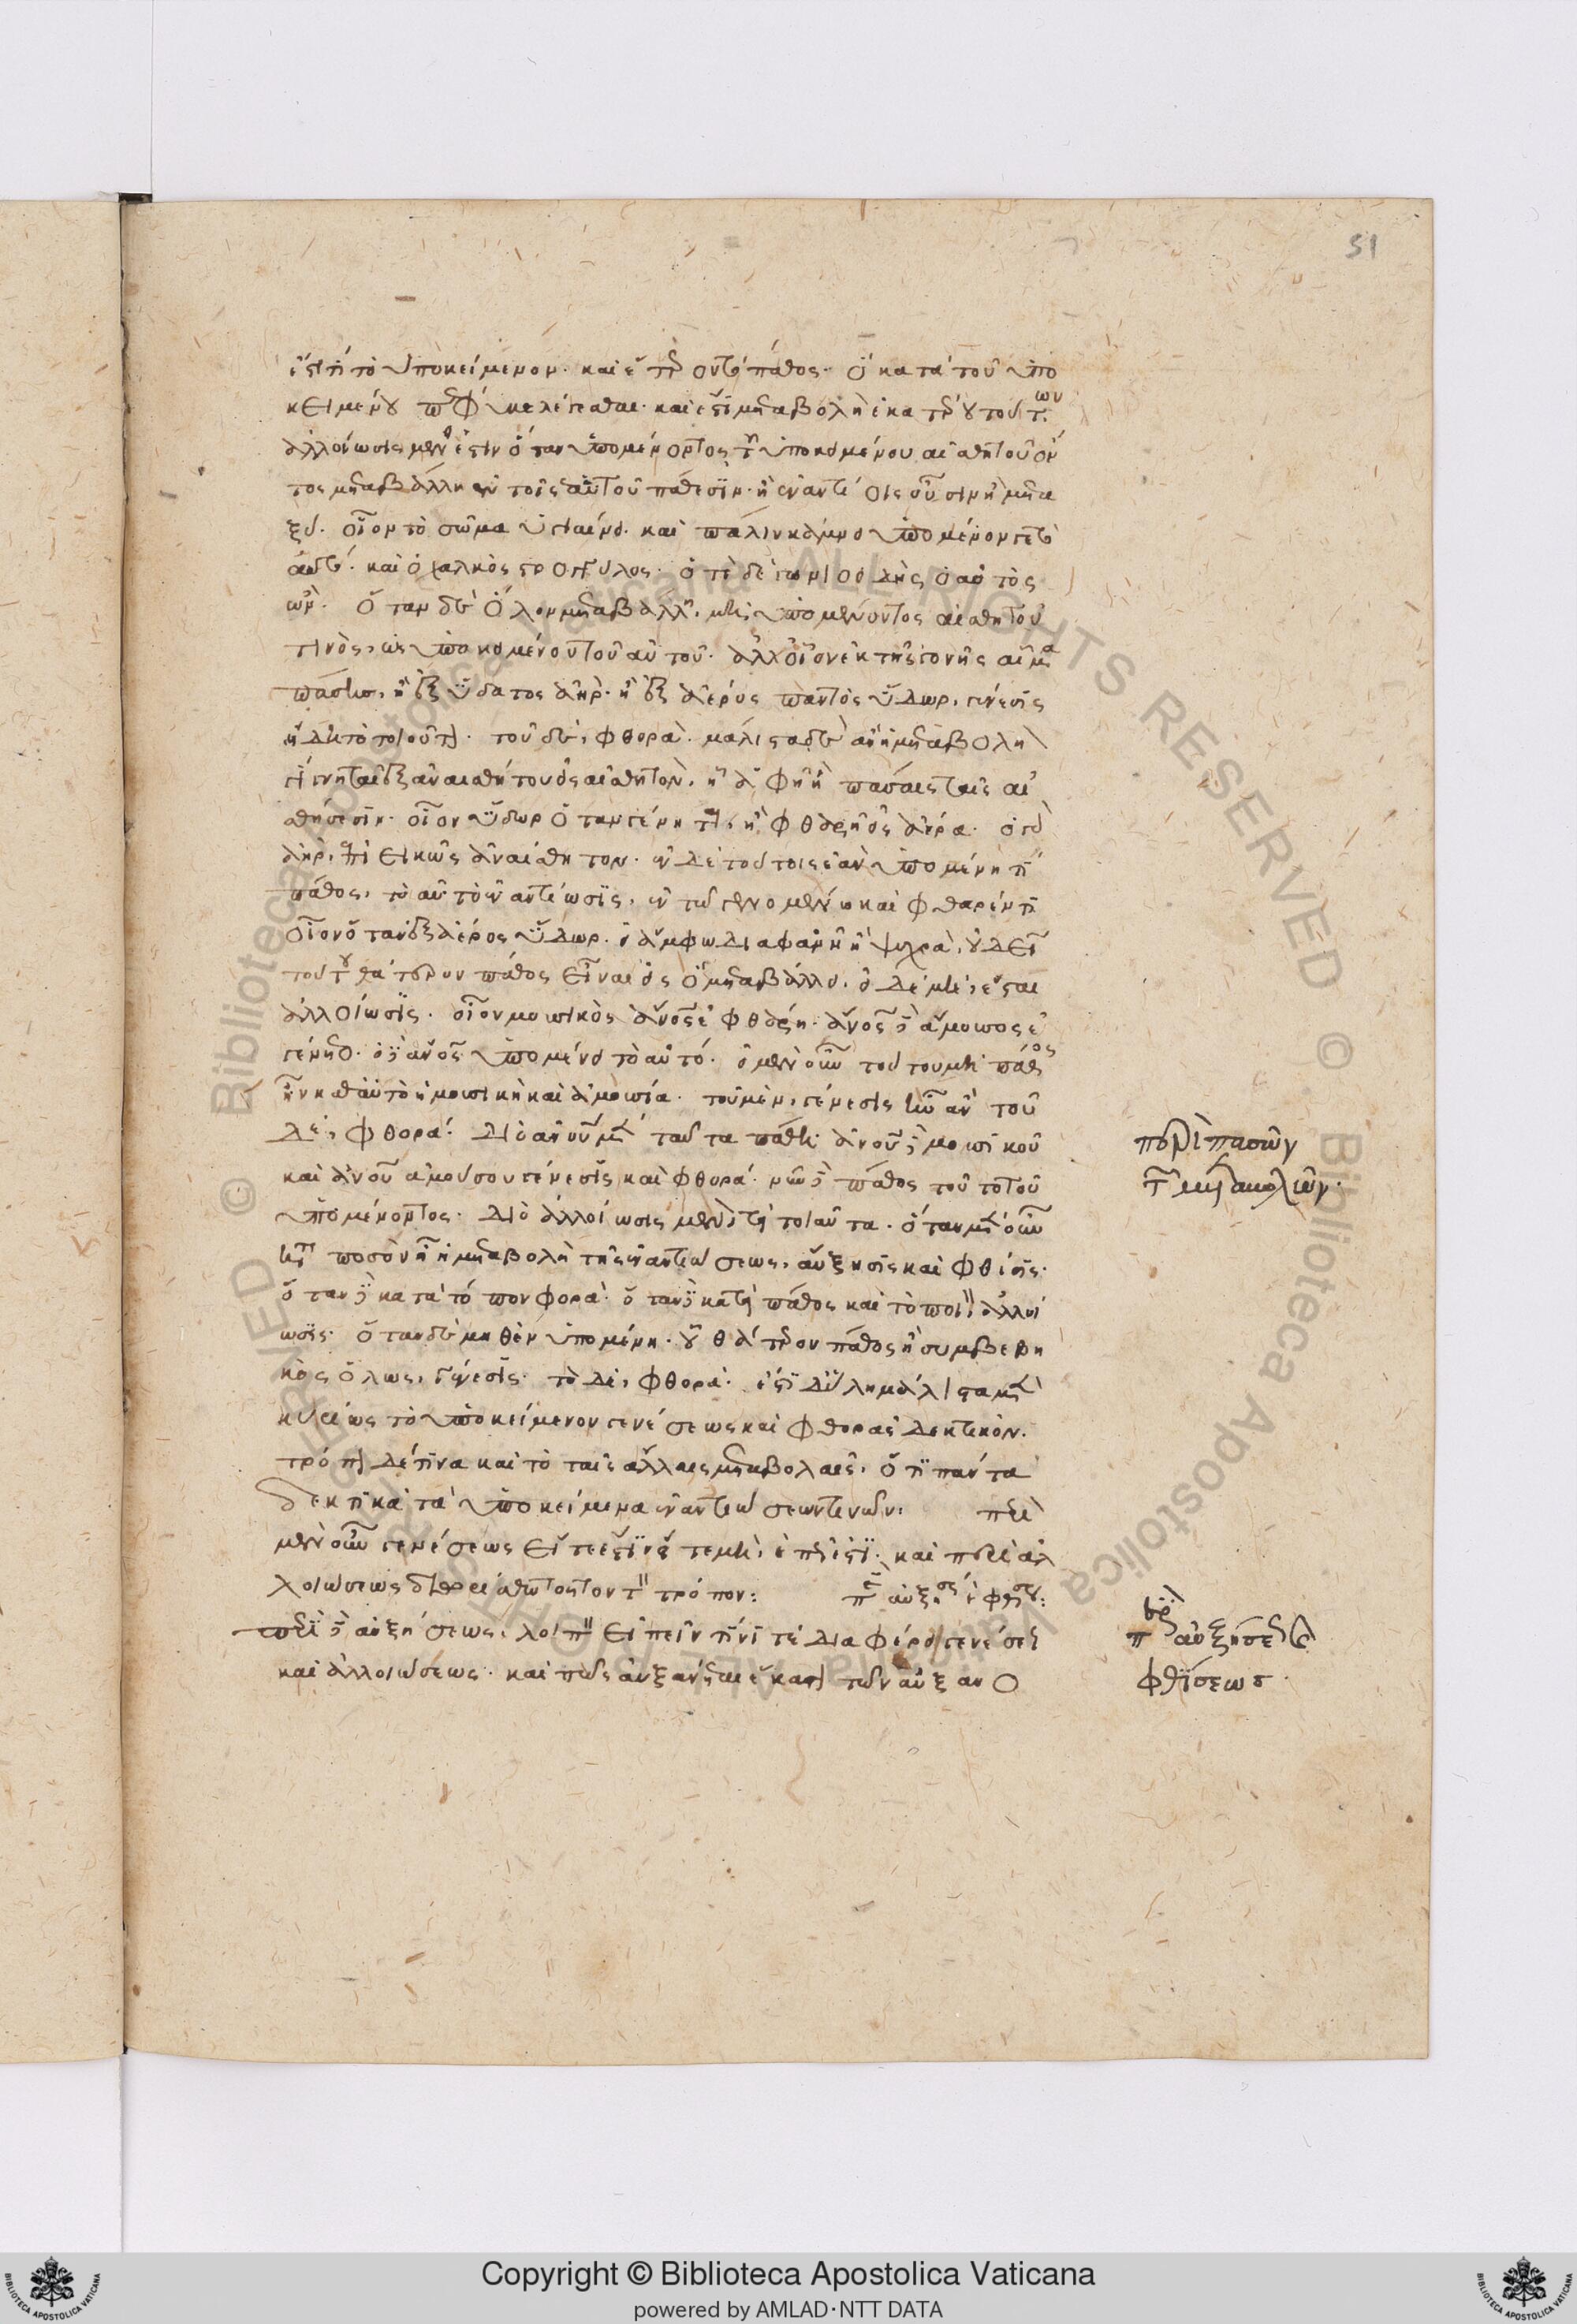 51
ἔστί τι τὸ ὑποκείμενον· καὶ ἕτερον τὸ πάθος· ὃ κατὰ τοῦ ὑπο
κειμένου πέφυκε λέγεσθαι· καὶ ἔστι μεταβολὴ ἑκατέρου τούτων
ἀλλοίωσις μέν ἐστιν ὅταν ὑπομένοντος τοῦ ὑποκειμένου αἰσθητοῦ ὄν
τος μεταβάλλη ἐν τοῖς αὐτοῦ πάθεσιν· ἢ ἐναντίοις οὖσιν ἢ μετα
ξύ· οἷον τὸ σῶμα ὑγιαίνει· καὶ πάλιν κάμνει ὑπομένον γε τὸ
αὐτό· καὶ ὁ χαλκὸς στρογγύλος· ὁτὲ δὲ γωνιοειδὴς ὁ αὐτὸς
ὤν· ὅταν δὲ ὅλον μεταβάλλη, μὴ ὑπομένοντος αἰσθητοῦ
τινὸς, ὡς ὑποκειμένου τοῦ αὐτοῦ· ἀλλ' οἷον ἐκ τῆς γονῆς αἷμα
πάσης, ἢ ἐξ ὕδατος ἀὴρ· ἢ ἐξ ἀέρος παντὸς ὕδωρ, γένεσις
ἤδη τὸ τοιοῦτον· τοῦ δὲ, φθορά· μάλιστα δὲ ἂν ἡ μεταβολὴ
γίνηται ἐξ ἀναισθήτου εἰς αἰσθητὸν, ἢ ἁφῆ ἢ πάσαις ταῖς αἰ
σθήσεσιν· οἷον ὕδωρ ὅταν γένηται, ἢ φθαρῆ εἰς ἀέρα· ὁ γὰρ
ἀὴρ, ἐπιεικῶς ἀναίσθητον· ἐν δὲ τούτοις ἐὰν ὑπομένη τι
πάθος, τὸ αὐτὸ ἐναντιώσεις, ἐν τῷ γενομένω καὶ φθαρέντι
οἷον ὅταν ἐξ ἀέρος ὕδωρ· εἰ ἄμφω διαφανῆ ἢ ψυχρὰ, οὐ δεῖ
τούτου θάτερον πάθος εἶναι εἰς ὃ μεταβάλλει· εἰ δὲ μὴ, ἔσται
ἀλλοίωσις· οἷον μουσικὸς ἄνος ἐφθάρη· ἄνος δὲ ἄμουσος ἐ
γένετο· ὁ δὲ ἄνος ὑπομένει τὸ αὐτό· εἰ μὲν οὖν τούτου μὴ πάθος
ἦν καθ' αὑτὸ ἡ μουσικὴ καὶ ἀμουσία· τοῦ μὲν, γένεσις ἦν ἂν τοῦ
δὲ, φθορά· διὸ ἀνου μὲν ταῦτα πάθη· ἀνου δὲ μουσικοῦ
καὶ ἀνου ἀμούσου γένεσις καὶ φθορά· νῦν δὲ πάθος τοῦτο τοῦ
ὑπομένοντος· διὸ ἀλλοίωσις μὲν τὰ τοιαῦτα· ὅταν μὲν οὖν
κατὰ ποσὸν ἦ ἡ μεταβολὴ τῆς ἐναντιώσεως, αὔξησις καὶ φθίσις·
ὅταν δὲ κατὰ τόπον φορά· ὅταν δὲ κατὰ πάθος καὶ τὸ ποιὸν, ἀλλοί
ωσις· ὅταν δὲ μηθὲν ὑπομένη· οὗ θάτερον πάθος ἢ συμβεβη
κὸς ὅλως, γένεσις· τὸ δὲ, φθορά· ἐστὶ δὲ ὕλη μάλιστα μὲν
κυρίως τὸ ὑποκείμενον γενέσεως καὶ φθορᾶς δεκτικόν·
τρόπον δέ τινα καὶ τὸ ταῖς ἄλλαις μεταβολαῖς, ὅτι πάντα
δεκτικὰ τὰ ὑποκείμενα ἐναντιώσεων τινῶν: περὶ
μὲν οὖν γενέσεως εἴτε ἔστιν εἴτε μὴ, καὶ πῶς ἐστι· καὶ περὶ ἀλ
λοιώσεως διωρίσθω τοῦτον τὸν τρόπον: περὶ αὐξήσεως καὶ φθίσεως:
περὶ δὲ αὐξήσεως, λοιπὸν εἰπεῖν τίνι τε διαφέρει γενέσεως
καὶ ἀλλοιώσεως· καὶ πῶς αὐξάνεται ἕκαστον τῶν αὐξανο
περὶ πασῶν
τῶν μεταβολῶν·
περὶ αὐξήσεως καὶ
φθίσεως·
Copyright © Biblioteca Apostolica Vaticana
powered by AMLAD·NTT DATA